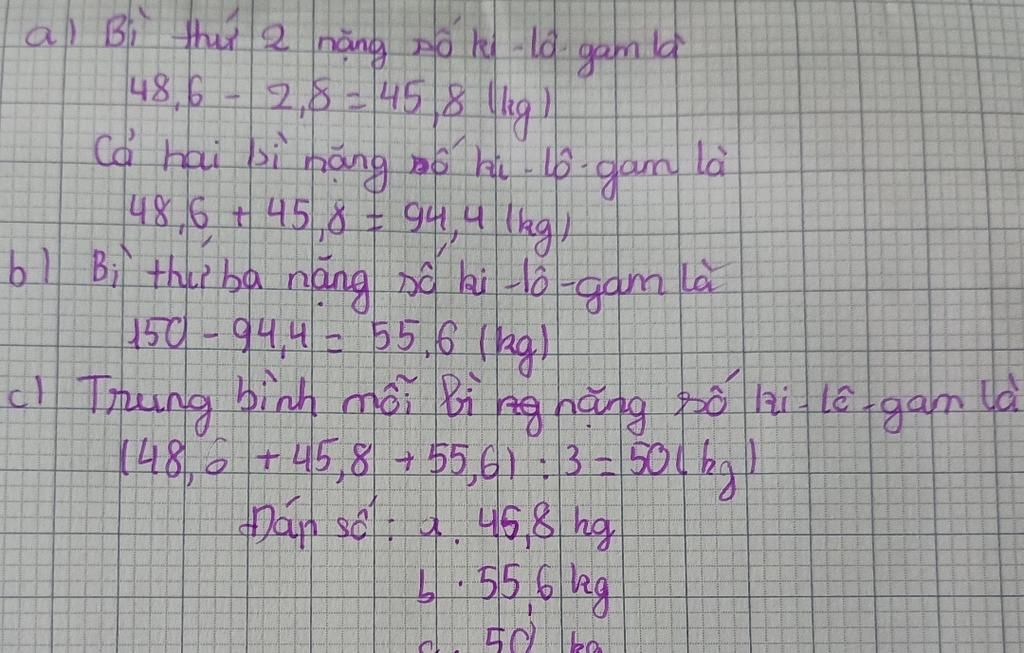 a) Bì thứ 2 nặng số ki-lô-gam là
48,6 - 2,8 = 45,8 (kg)
Cả hai bì nặng số ki-lô-gam là
48,6 + 45,8 = 94,4 (kg)
b) Bì thứ ba nặng số ki-lô-gam là
150 - 94,4 = 55,6 (kg)
c) Trung bình mỗi Bì nặng số ki-lô-gam là
(48,6 + 45,8 + 55,6) : 3 = 50 (kg)
Đáp số : a. 45,8 kg
b. 55,6 kg
c. 50 kg